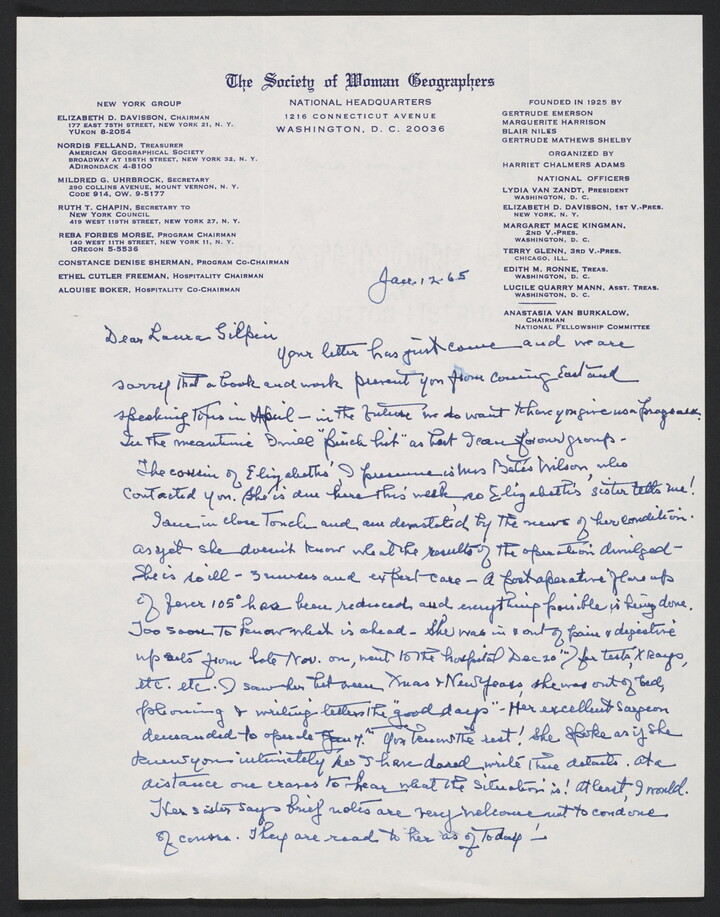 The Society of Woman Geographers
NATIONAL HEADQUARTERS
1216 CONNECTICUT AVENUE
WASHINGTON, D. C. 20036
NEW YORK GROUP
ELIZABETH D. DAVISSON, CHAIRMAN
177 EAST 75TH STREET, NEW YORK 21, N. Y.
YUKON 8-2054
NORDIS FELLAND, TREASURER
AMERICAN GEOGRAPHICAL SOCIETY
BROADWAY AT 156TH STREET, NEW YORK 32, N. Y.
ADIRONDACK 4-8100
MILDRED G. UHRBROCK, SECRETARY
290 COLLINS AVENUE, MOUNT VERNON, N. Y.
CODE 914, OW. 9-5177
RUTH T. CHAPIN, SECRETARY TO
NEW YORK COUNCIL
419 WEST 119TH STREET, NEW YORK 27, N. Y.
REBA FORBES MORSE, PROGRAM CHAIRMAN
140 WEST 11TH STREET, NEW YORK 11, N. Y.
OREGON 5-5536
CONSTANCE DENISE SHERMAN, PROGRAM CO-CHAIRMAN
ETHEL CUTLER FREEMAN, HOSPITALITY CHAIRMAN
ALOUISE BOKER, HOSPITALITY CO-CHAIRMAN
FOUNDED IN 1925 BY
GERTRUDE EMERSON
MARGUERITE HARRISON
BLAIR NILES
GERTRUDE MATHEWS SHELBY
ORGANIZED BY
HARRIET CHALMERS ADAMS
NATIONAL OFFICERS
LYDIA VAN ZANDT, PRESIDENT
WASHINGTON, D. C.
ELIZABETH D. DAVISSON, 1ST V.-PRES.
NEW YORK, N. Y.
MARGARET MACE KINGMAN,
2ND V.-PRES.
WASHINGTON, D. C.
TERRY GLENN, 3RD V.-PRES.
CHICAGO, ILL.
EDITH M. RONNE, TREAS.
WASHINGTON, D. C.
LUCILE QUARRY MANN, ASST. TREAS.
WASHINGTON, D. C.
ANASTASIA VAN BURKALOW,
CHAIRMAN
NATIONAL FELLOWSHIP COMMITTEE
Jan. 12-65
Dear Laura Gilpin
Your letter has just come and we are
sorry that a book and work prevent you from coming East and
speaking to us in April - in the future we do want to have you give us a program.
In the meantime I will "pinch hit" as best I can for our group -
The cousin of Elizabeths', I presume is Mrs Bates Wilson, who
contacted you. She is due here this week, so Elizabeth's sister tells me!
I am in close touch and am devastated by the news of her condition.
as yet she doesn't know what the results of the operation divulged -
She is so ill - 3 nurses and expert care - A post operative flare up
of fever 105° has been reduced and everything possible is being done.
Too soon to know what is ahead - She was in & out of pain & digestive
upsets from late Nov. on, went to the hospital Dec 20th for tests, X rays,
etc. etc. I saw her between Xmas & New Years, she was out of bed,
phoning & writing letters the "good days" - Her excellent surgeon
demanded to operate Jan 7th. You know the rest! She spoke as if she
knew you intimately so I have dared write these details. At a
distance one craves to hear what the situation is! At least, I would.
Her sister says brief notes are very welcome not to condone
of course. They are read to her as of today! -